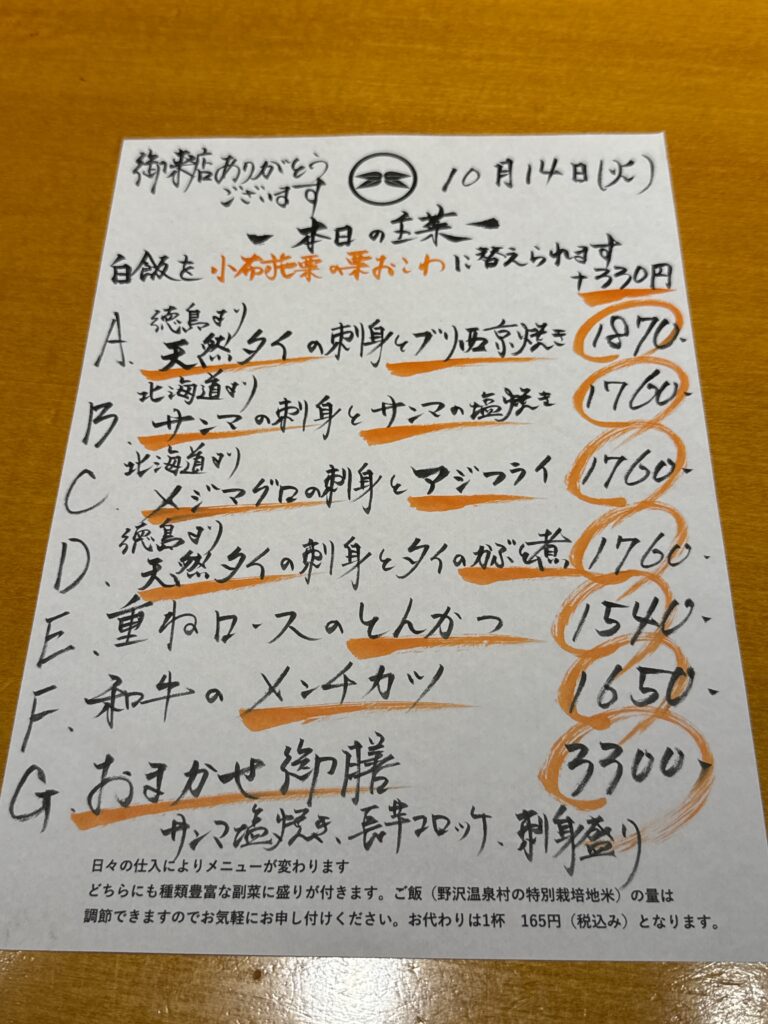 御来店ありがとう
ございます
10月14日(火)
ー本日の主菜ー
白飯を小布施栗の栗おこわに替えられます
+330円
徳島より
A. 天然タイの刺身とブリ西京焼き 1870-
北海道より
B. サンマの刺身とサンマの塩焼き 1760-
北海道より
C. メジマグロの刺身とアジフライ 1760-
徳島より
D. 天然タイの刺身とタイのかぶと煮 1760-
E. 重ねロースのとんかつ 1540-
F. 和牛のメンチカツ 1650-
G. おまかせ御膳 3300-
サンマ塩焼き、長芋コロッケ、刺身盛り
日々の仕入によりメニューが変わります
どちらにも種類豊富な副菜に盛りが付きます。ご飯（野沢温泉村の特別栽培地米）の量は
調節できますのでお気軽にお申し付けください。お代わりは1杯　165円（税込み）となります。